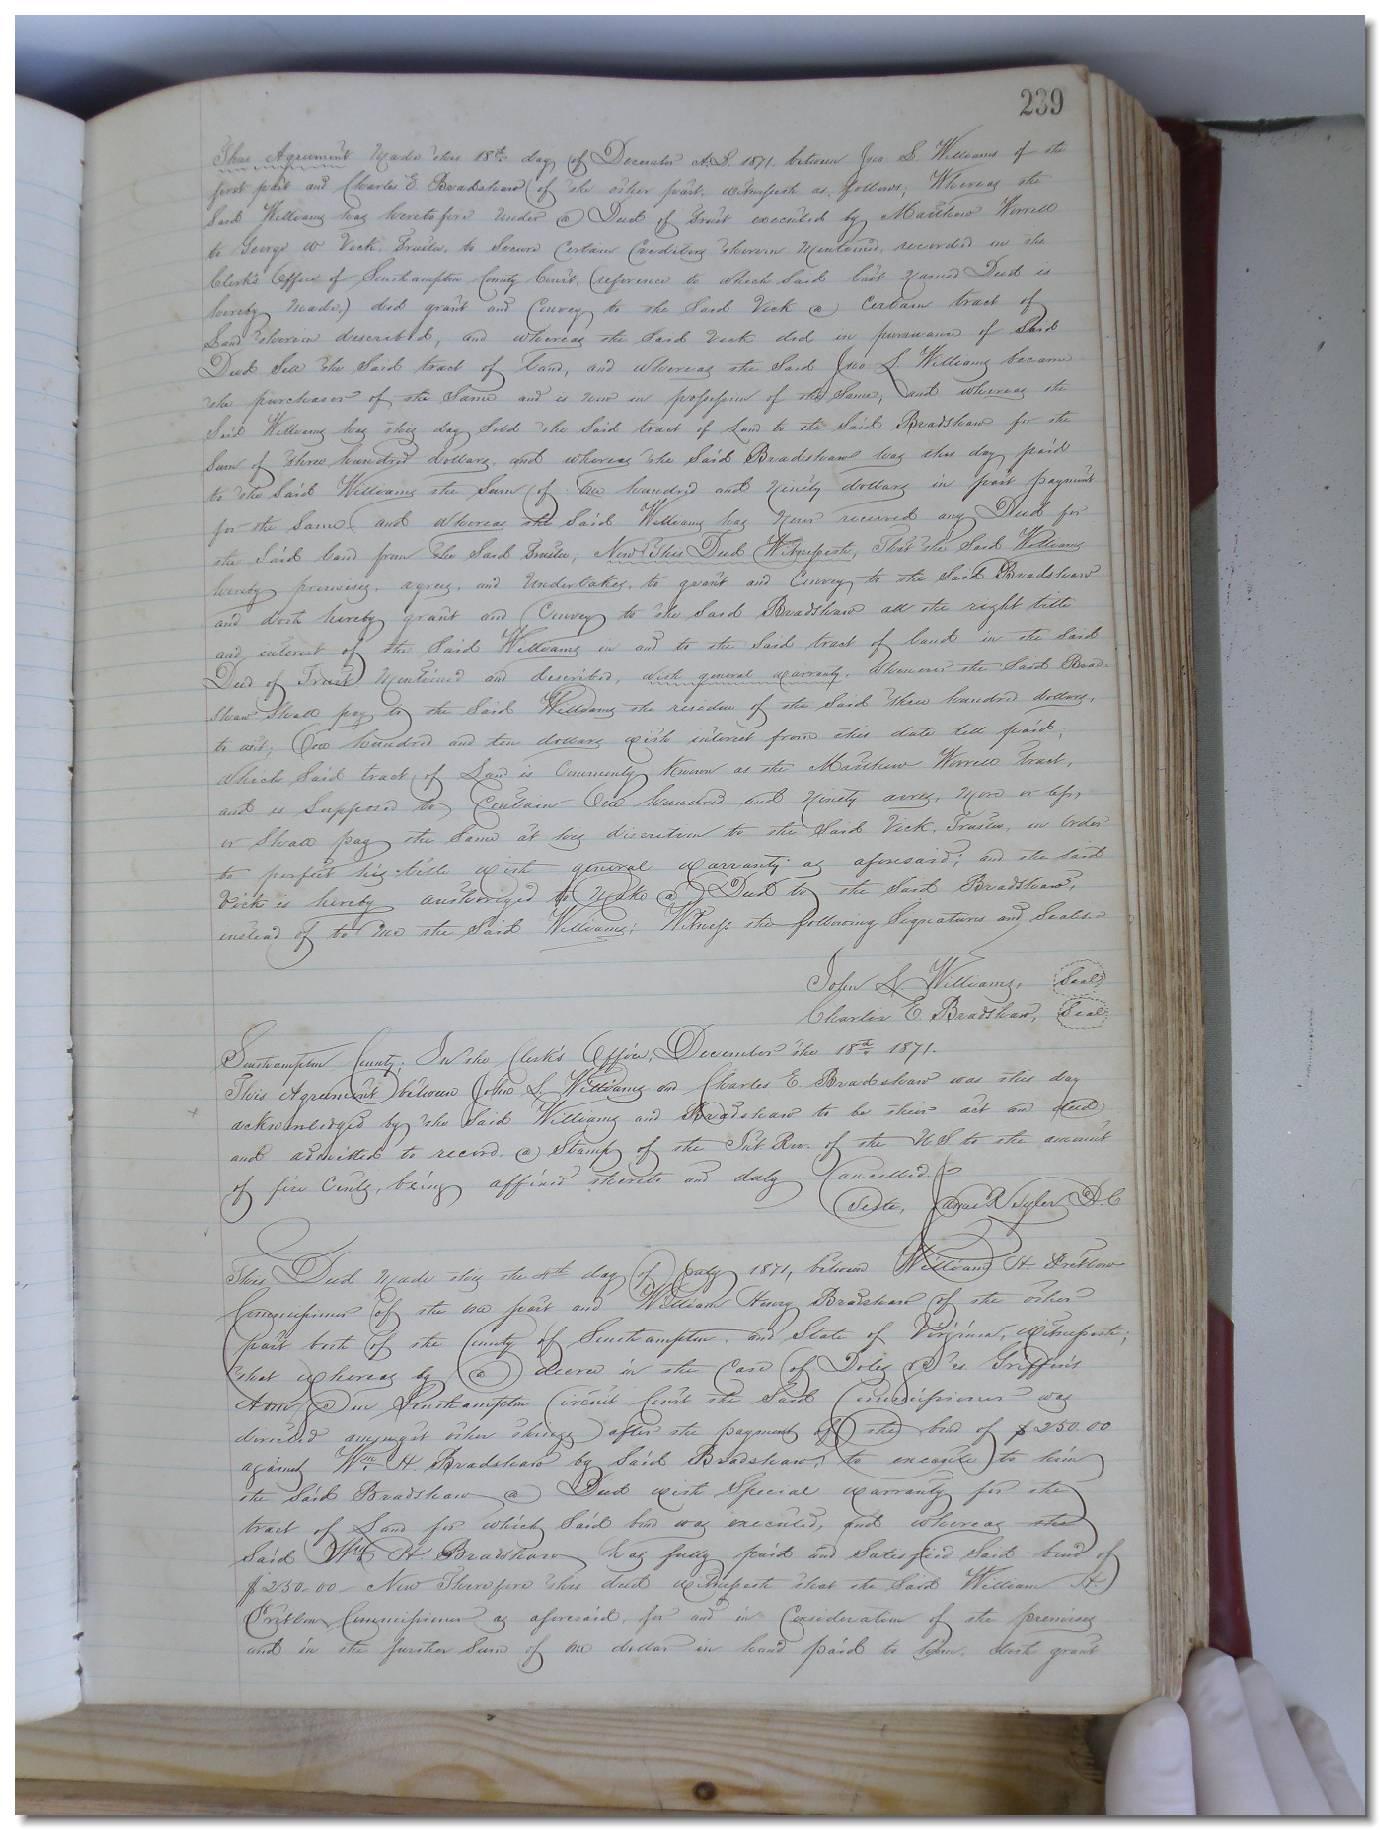 239
This Agreement Made this 18th day of December A.D. 1871 between Jno L. Williams of the
first part and Charles E. Bradshaw of the other part, witnesseth as follows; Whereas the
Said Williams has heretofore under a Deed of Trust executed by Matthew Worrell
to George W Vick, Trustee, to Secure Certain Creditors therein Mentioned, recorded in the
Clerk's Office of Southampton County Court, (reference to which Said last Named Deed is
hereby Made,) did grant and Convey to the Said Vick a Certain tract of
Land therein described, and whereas the Said Vick did in pursuance of Said
Deed Sell the Said tract of land, and whereas the Said Jno L. Williams became
the purchaser of the Same and is now in possession of the Same, and whereas the
Said Williams has this day Sold the Said tract of Land to the Said Bradshaw for the
Sum of three hundred dollars, and whereas the Said Bradshaw has this day paid
to the Said Williams the Sum of One hundred and Ninety dollars in part payment
for the Same, and whereas the Said Williams has Never received any Deed for
the Said land from the Said Trustee, Now This Deed Witnesseth, That the Said Williams
hereby promises, agrees, and Undertakes, to grant and Convey to the Said Bradshaw
and doth hereby grant and Convey to the Said Bradshaw all the right title
and interest of the Said Williams in and to the Said tract of land in the Said
Deed of Trust Mentioned and described, with general warranty, Whenever the Said Brad-
shaw Shall pay to the Said Williams the residue of the Said three hundred dollars,
to wit; One hundred and ten dollars with interest from this date till paid;
which Said tract of Land is Commonly Known as the Matthew Worrell tract,
and is Supposed to Contain One hundred and Ninety acres, More or less,
or Shall pay the Same at his discretion to the Said Vick, Trustee, in order
to perfect his title with general warranty as aforesaid; and the Said
Vick is hereby authorized to Make a Deed to the Said Bradshaw,
instead of to Me the Said Williams; Witness the following Signatures and Seals.
John L. Williams, Seal
Charles E. Bradshaw, Seal
Southampton County; In the Clerk's Office, December the 18th 1871.
This Agreement between John L. Williams and Charles E. Bradshaw was this day
acknowledged by the Said Williams and Bradshaw to be their act and deed
and admitted to record. a Stamp of the Int. Rev. of the U S to the amount
of five Cents, being affixed thereto and duly Cancelled.
Teste, James R Tyler D.C
This Deed Made this the 4th day of July 1871, between William H Pretlow
Commissioner of the one part and William Henry Bradshaw of the other
part both of the County of Southampton, and State of Virginia, witnesseth;
that whereas by a decree in the Case of Doles vs Griffin's
Admr in Southampton Circuit Court the Said Commissioner was
directed amongst other things after the payment of the bond of $250.00
against Wm H. Bradshaw by Said Bradshaw, to execute to him
the Said Bradshaw a Deed with Special warranty for the
tract of Land for which Said bond was executed, and whereas the
Said Wm H. Bradshaw has fully paid and Satisfied Said bond of
$250.00 - Now Therefore this deed witnesseth that the Said William H.
Pretlow Commissioner as aforesaid, for and in Consideration of the premises
and in the further Sum of one dollar in hand paid to him, doth grant